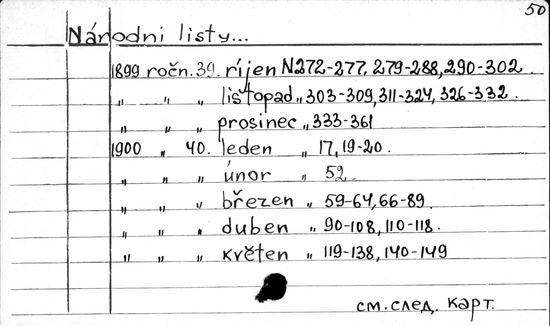 50
Národni listy...
1899 ročn. 39. ríjen N272-277, 279-288, 290-302.
„ „ „ lištopad „ 303-309, 311-324, 326-332.
„ „ „ prosinec „ 333-361
1900 „ 40. leden „ 17, 19-20.
„ „ „ únor „ 52.
„ „ „ březen „ 59-64, 66-89.
„ „ „ duben „ 90-108, 110-118.
„ „ „ květen „ 119-138, 140-149
см. след. карт.